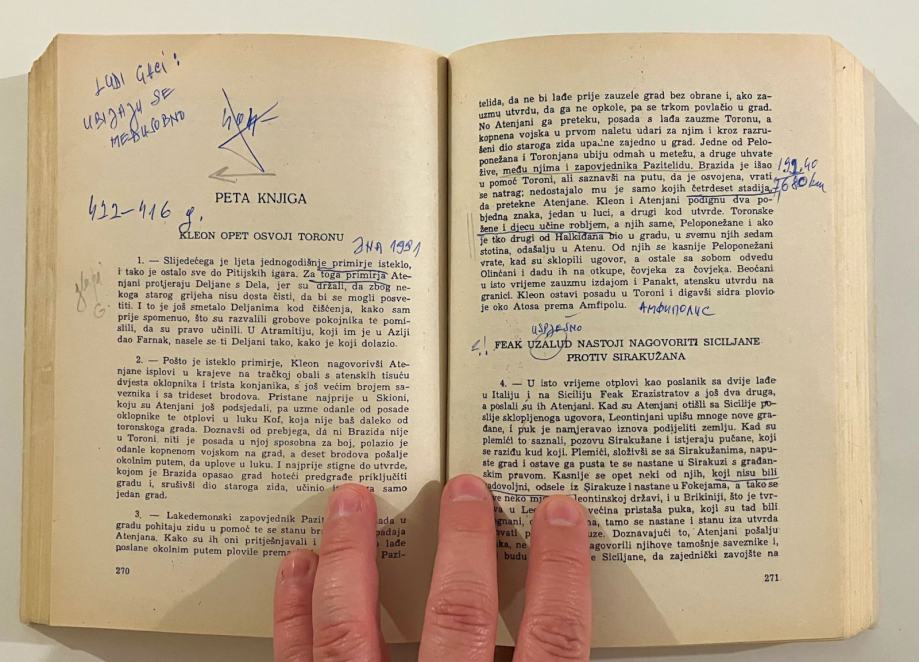 LUDI GRCI:
UBIJAJU SE
MEĐUSOBNO
PETA KNJIGA
422–416 g.
KLEON OPET OSVOJI TORONU
JNA 1991
1. — Slijedećega je ljeta jednogodišnje primirje isteklo,
i tako je ostalo sve do Pitijskih igara. Za toga primirja Ate-
njani protjeraju Deljane s Dela, jer su držali, da zbog ne-
koga starog grijeha nisu dosta čisti, da bi se mogli posve-
titi. I to je još smetalo Deljanima kod čišćenja, kako sam
prije spomenuo, što su razvalili grobove pokojnika te pomi-
slili, da su pravo učinili. U Atramitiju, koji im je u Aziji
dao Farnak, nasele se ti Deljani tako, kako je koji dolazio.
2. — Pošto je isteklo primirje, Kleon nagovorivši Ate-
njane isplovi u krajeve na tračkoj obali s atenskih tisuću
dvjesta oklopnika i trista konjanika, s još većim brojem sa-
veznika i sa trideset brodova. Pristane najprije u Skioni,
koju su Atenjani još podsjedali, pa uzme odande od posade
oklopnike te otplovi u luku Kof, koja nije baš daleko od
toronskoga grada. Doznavši od prebjega, da ni Brazida nije
u Toroni, niti je posada u njoj sposobna za boj, polazio je
odanle kopnenom vojskom na grad, a deset brodova pošalje
okolnim putem, da uplove u luku. I najprije stigne do utvrde,
kojom je Brazida opasao grad hoteći predgrađe priključiti
gradu i, srušivši dio staroga zida, učinio samo
jedan grad.
3. — Lakedemonski zapovjednik u
gradu pohitaju zidu u pomoć te se stanu
Atenjana. Kako su ih oni pritješnjavali i lađe
poslane okolnim putem plovile Pazi-
270
telida, da ne bi lađe prije zauzele grad bez obrane i, ako za-
uzmu utvrdu, da ga ne opkole, pa se trkom povlačio u grad.
No Atenjani ga preteku, posada s lađa zauzme Toronu, a
kopnena vojska u prvom naletu udari za njim i kroz razru-
šeni dio staroga zida upadne zajedno u grad. Jedne od Pelo-
ponežana i Toronjana ubiju odmah u metežu, a druge uhvate
žive, među njima i zapovjednika Pazitelida. Brazida je išao
u pomoć Toroni, ali saznavši na putu, da je osvojena, vrati
se natrag; nedostajalo mu je samo kojih četrdeset stadija,
da pretekne Atenjane. Kleon i Atenjani podignu dva po-
bjedna znaka, jedan u luci, a drugi kod utvrde. Toronske
žene i djecu učine robljem, a njih same, Peloponežane i ako
je tko drugi od Halkiđana bio u gradu, u svemu njih sedam
stotina, odašalju u Atenu. Od njih se kasnije Peloponežani
vrate, kad su sklopili ugovor, a ostale sa sobom odvedu
Olinćani i dadu ih na otkupe, čovjeka za čovjeka. Beoćani
u isto vrijeme zauzmu izdajom i Panakt, atensku utvrdu na
granici. Kleon ostavi posadu u Toroni i digavši sidra plovio
je oko Atosa prema Amfipolu.
АМФИПОЛИС
USPJEŠNO
FEAK UZALUD NASTOJI NAGOVORITI SICILJANE
PROTIV SIRAKUŽANA
4. — U isto vrijeme otplovi kao poslanik sa dvije lađe
u Italiju i na Siciliju Feak Erazistratov s još dva druga,
a poslali su ih Atenjani. Kad su Atenjani otišli sa Sicilije po-
slije sklopljenoga ugovora, Leontinjani upišu mnoge nove gra-
đane, i puk je namjeravao iznova podijeliti zemlju. Kad su
plemići to saznali, pozovu Sirakužane i istjeraju pučane, koji
se raziđu kud koji. Plemići, složivši se sa Sirakužanima, napu-
ste grad i ostave ga pusta te se nastane u Sirakuzi s građan-
skim pravom. Kasnije se opet neki od njih, koji nisu bili
zadovoljni, odsele iz Sirakuze i nastane u Fokejama, a tako se
neko leontinskoj državi, i u Brikiniji, što je tvr-
većina pristaša puka, koji su tad bili
tamo se nastane i stanu iza utvrda
Doznavajući to, Atenjani pošalju
nagovorili njihove tamošnje saveznike i,
Siciljane, da zajednički zavojšte na
271